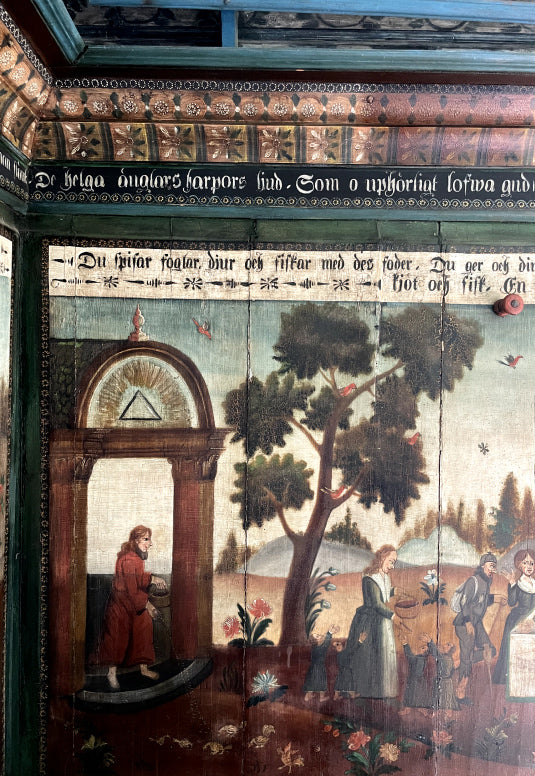 De helga änglars harpors liud. Som o uphörligt lofwa gud
Du spisar foglar, diur och fiskar med des foder. Du ger och
kjöt och fisk. En